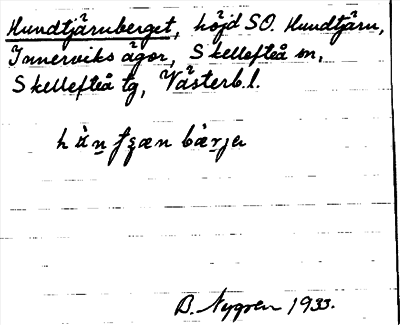 Hundtjärnberget, höjd SO. Hundtjärn,
Innerviks ägor, Skellefteå sn,
Skellefteå tg, Västerb. l.
B. Nygren 1933.